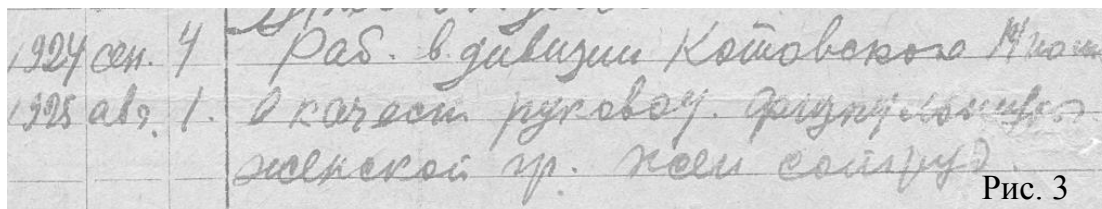 1924 сен. 4 Раб. в дивизии Котовского
1925 авг. 1. в качест руковод. физкультуры
женской гр. жен сотруд.
Рис. 3